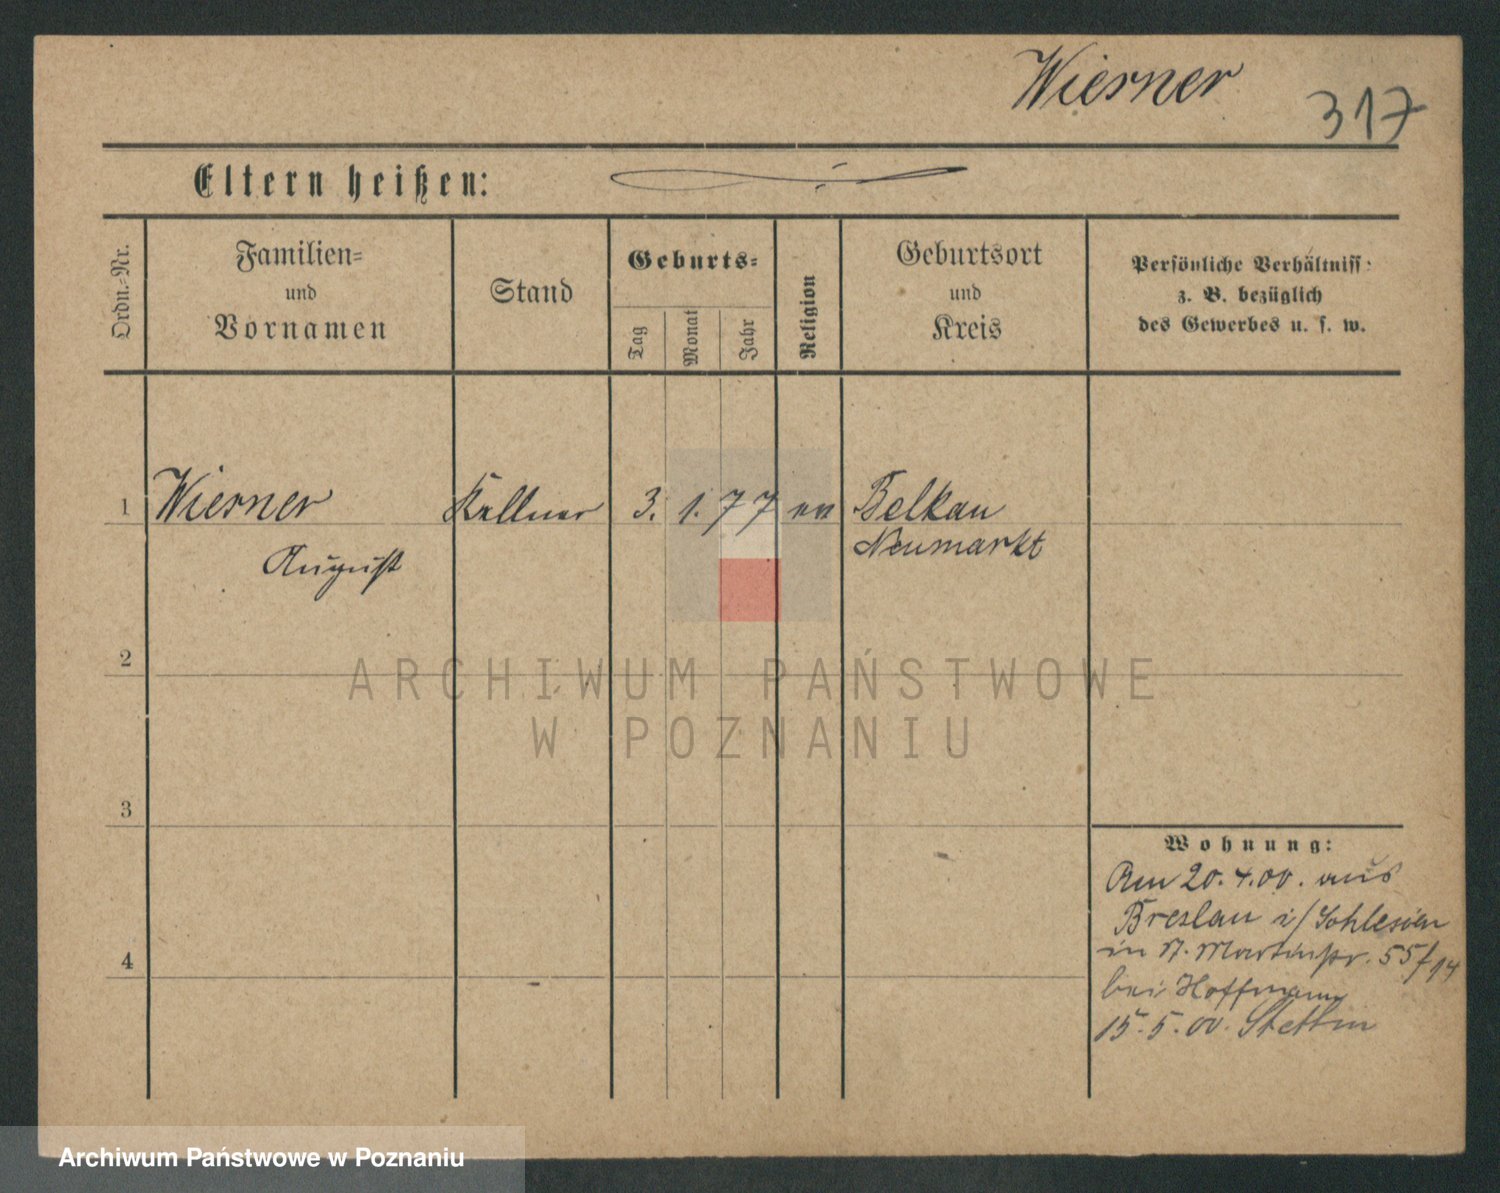 Wierner
317
Eltern heißen:
Ordn.-Nr.
Familien-
und
Vornamen
Stand
Geburts-
Tag
Monat
Jahr
Religion
Geburtsort
und
Kreis
Persönliche Verhältniss
z. B. bezüglich
des Gewerbes u. s. w.
1 Wierner Kellner 3. 1. 77 ev Belkau
August Neumarkt
2
ARCHIWUM PAŃSTWOWE
W POZNANIU
3
Wohnung:
Am 20.4.00. aus
Breslau i/Schlesien
in St. Martinstr. 55/14
4
bei Hoffmann
15.5.00. Stettin
Archiwum Państwowe w Poznaniu